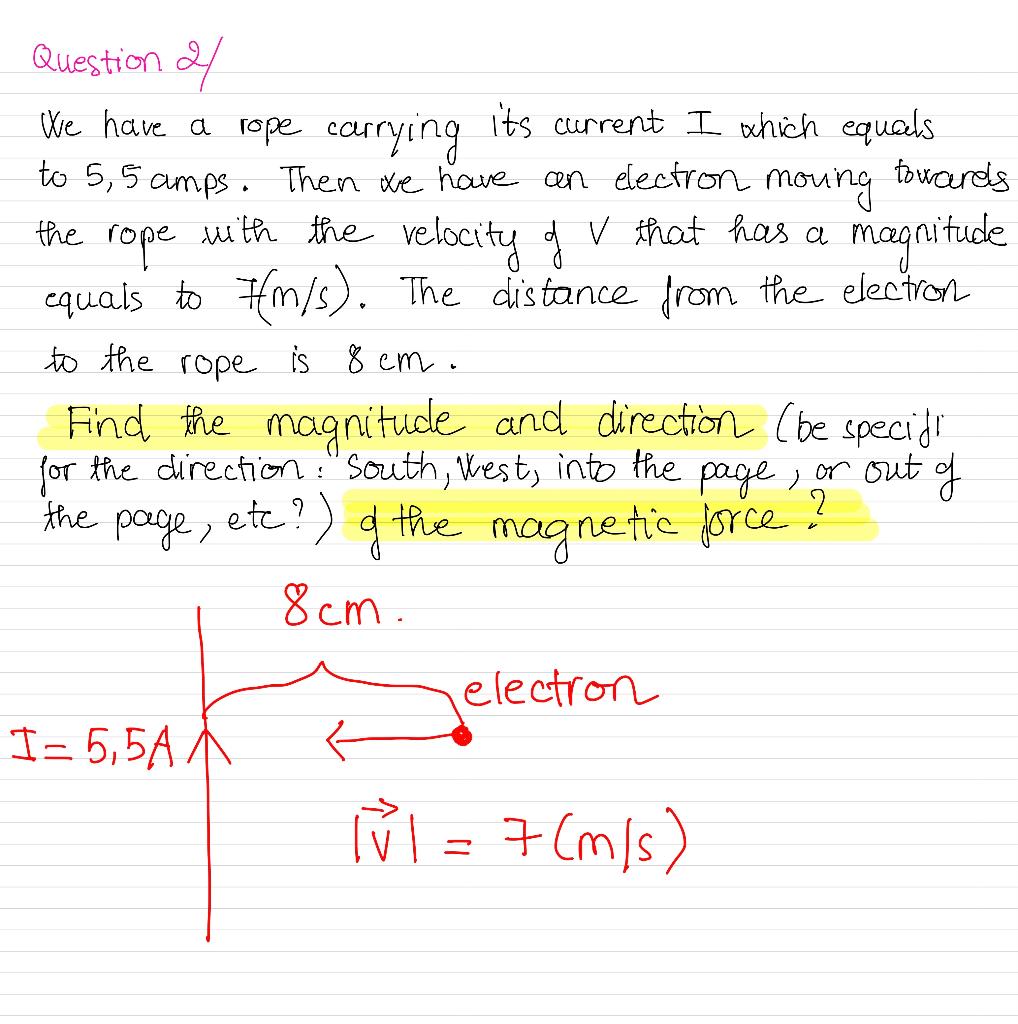 Question 2/
We have a rope carrying its current I which equals
to 5,5 amps. Then we have an electron moving towards
the rope with the velocity of V that has a magnitude
equals to 7(m/s). The distance from the electron
to the rope is 8 cm.
Find the magnitude and direction (be specifi
for the direction: South, West, into the page, or out of
the page, etc?) of the magnetic force?
8cm.
electron
I = 5,5A
|v⃗| = 7 (m/s)